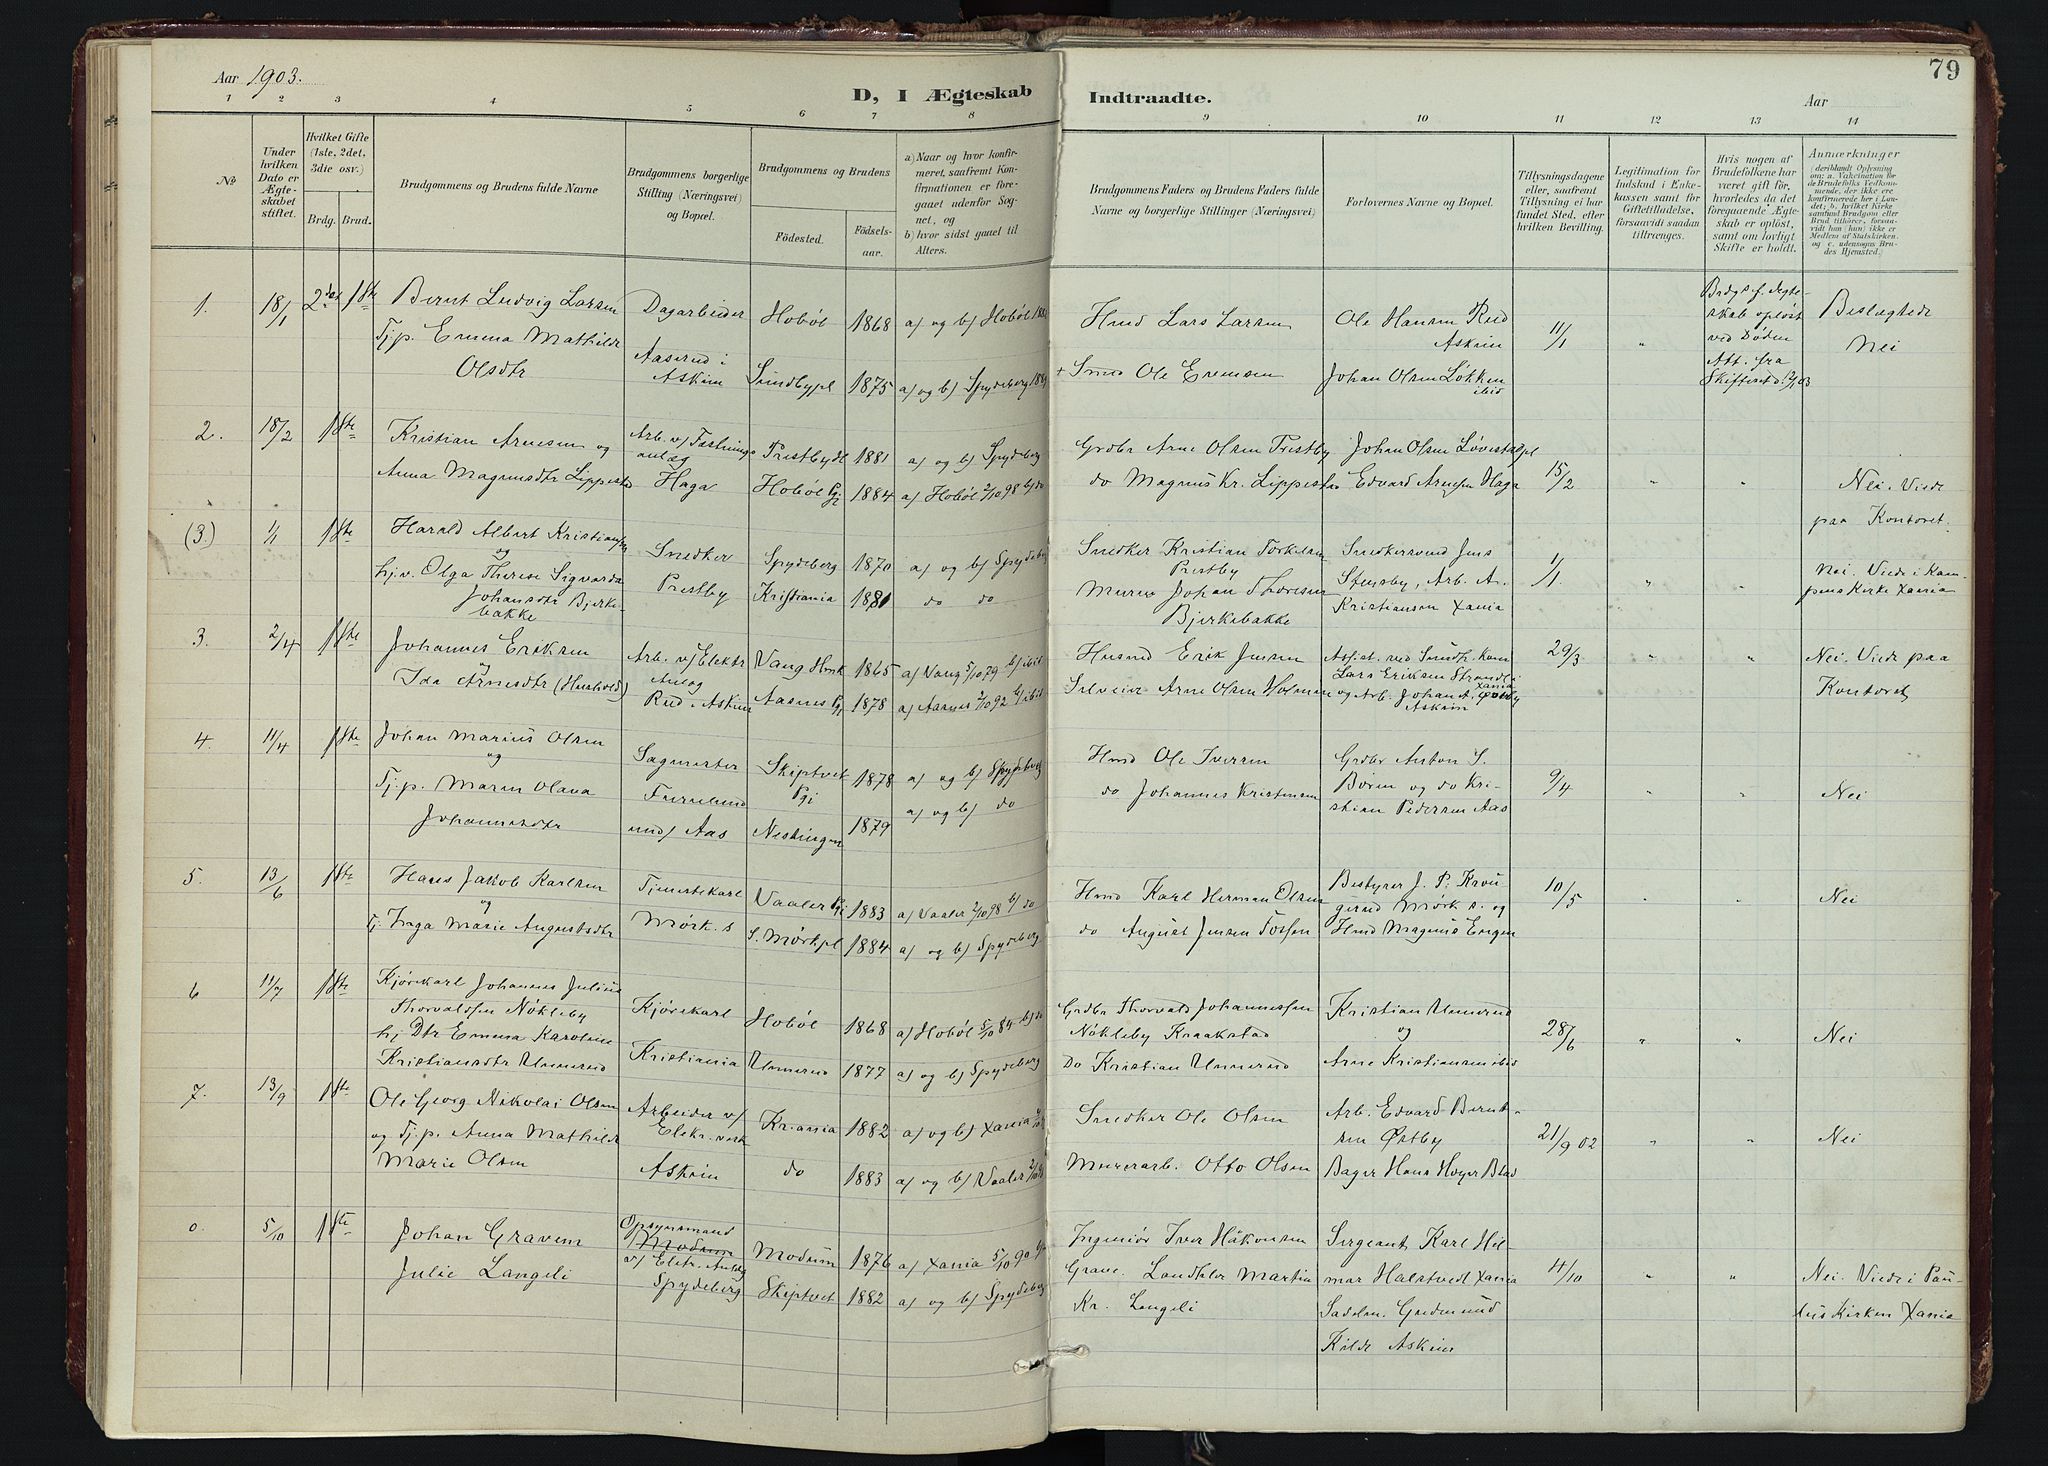 Aar 1903.
D, I Ægteskab Indtraadte.
Aar
79
1 2 3 4 5 6 7 8 9 10 11 12 13 14
No
Under hvilken Dato er Ægteskabet stiftet.
Hvilket Gifte (1ste, 2det, 3die osv.)
Brdg. Brud.
Brudgommens og Brudens fulde Navne
Brudgommens borgerlige Stilling (Næringsvei) og Bopæl.
Brudgommens og Brudens
Fødested.
Fødselsaar.
a) Naar og hvor konfirmeret, saafremt Konfirmationen er foregaaet udenfor Sognet, og
b) hvor sidst gaaet til Alters.
Brudgommens Faders og Brudens Faders fulde Navne og borgerlige Stillinger (Næringsvei)
Forlovernes Navne og Bopæl.
Tillysningsdagene eller, saafremt Tillysning ei har fundet Sted, efter hvilken Bevilling.
Legitimation for Indskud i Enkekassen samt for Giftetilladelse, forsaavidt saadan tiltrænges.
Hvis nogen af Brudefolkene har været gift før, hvorledes da det foregaaende Ægteskab er opløst, samt om lovligt Skifte er holdt.
Anmærkninger
(deriblandt Oplysning om: a. Vakcination for de Brudefolks Vedkommende, der ikke ere konfirmerede her i Landet; b. hvilket Kirkesamfund Brudgom eller Brud tilhører, forsaavidt han (hun) ikke er Medlem af Statskirken, og c. udensogns Brudes Hjemsted.)
1. 18/1 2det 1ste Bernt Ludvig Larsen Dagarbeider Hobøl 1868 a) og b) Hobøl Hmd Lars Larsen Ole Hansen Rud Askim 11/1 " Brdgs f. Ægteskab opløst ved Døden Att. fra Skifteret d. 12/1 03 Beslægtede Nei
Tj.p. Emma Mathilde Olsdtr Aaserud i Askim Sundbypl 1875 a) og b) Spydeberg Smed Ole Evensen Johan Olsen Løkken ibid
2. 18/2 1ste Kristian Arnesen og Arb. v/ Fæstningsanlæg Prestbydl 1881 a) og b) Spydeberg Grdbr Arne Olsen Prestby Johan Olsen Løvestadpl 15/2 " " Nei. Viede paa Kontoret.
Anna Magnusdtr Lippestad Haga Hobøl Pgj 1884 a) Hobøl 2/10 98 b) do do Magnus Kr. Lippestad Edvard Arnesen Haga
(3) 1/1 1ste Harald Albert Kristiansen og Snedker Spydeberg 1870 a) og b) Spydeberg Snedker Kristian Torkelsen Prestby Snedkersvend Jens Stensby, Arb. A. Kristiansen Xania 1/1. " " Nei. Viede i Kampens Kirke Xania
hj.v. Olga Therese Sigvarda Johansdtr Bjerkebakke Prestby Kristiania 1881 do do Murer Johan Thoresen Bjerkebakke
3. 2/4 1ste Johannes Eriksen og Arb. v/ Elektr Anlæg Vang Hmk 1865 a) Vang 5/10 79 b) ibid Husmd Erik Jensen Assist. ved Sundh.kom Lars Eriksen Strand i Xania 29/3 " " Nei. Viede paa Kontoret
Ida Arnesdtr (Hushold) Rud i Askim Aasnes Pgj 1878 a) Aasnes 2/10 92 b) ibid Arne Olsen Holmen og Arb. Johan A. Østby Askim
4. 11/4 1ste Johan Marius Olsen og Sagmester Skiptvet Pgj 1878 a) og b) Spydeberg Hmd Ole Iversen Grdbr Anton S. Boren og do Kristian Pedersen Aas 9/4 " " Nei
Tj.p. Maren Olava Johannesdtr Furulund und/ Aas Neskingen 1879 a) og b) do do Johannes Kristensen
5. 13/6 1ste Hans Jakob Karlsen og Tjenestekarl Vaaler Pgj 1883 a) Vaaler 2/10 98 b) do Hmd Karl Herman Olsen Bestyrer J. P. Krougerud Mørk s. og 10/5 " " Nei
Tj. Inga Marie Augustsdtr Mørk. s S. Mørkpl 1884 a) og b) Spydeberg do August Jensen Fossen Hmd Magnus Engen
6 11/7 1ste Kjørekarl Johannes Julius Thorvaldsen Nøkleby Kjørekarl Hobøl 1868 a) Hobøl 5/10 84 b) do Grdbr Thorvald Johannessen Nøkleby Kraakstad Kristian Unnerud og 28/6 " " Nei
hj Dtr Emma Karoline Kristiansdtr Unnerud Kristiania Unnerud 1877 a) og b) Spydeberg Do Kristian Unnerud Arne Kristiansen ibid
7. 13/9 1ste Ole Georg Nikolai Olsen Arbeider v/ Elekr.verk Kr.ania 1882 a) og b) Xania Snedker Ole Olsen Arb. Edvard Berntsen Østby 21/9 02 " " Nei
og Tj.p. Anna Mathilde Marie Olsen Askim do 1883 a) og b) Vaaler Murerarb. Otto Olsen Bager Hans Høyer Blad
0. 5/10 1ste Johan Gravem Opsynsmand v/ Elctr. Anlæg Modum 1876 a) Xania 5/10 90 Ingeniør Iver Håkonsen Grave. Sergeant Karl Hilmar Halstvedt Xania 4/10 " " Nei. Viede i Paulus Kirken Xania
Julie Langeli Spydeberg Skiptvet 1882 a) og b) Spydeberg Landhdler Martin Kr. Langeli Sadelm. Gudmund Kilde Askim